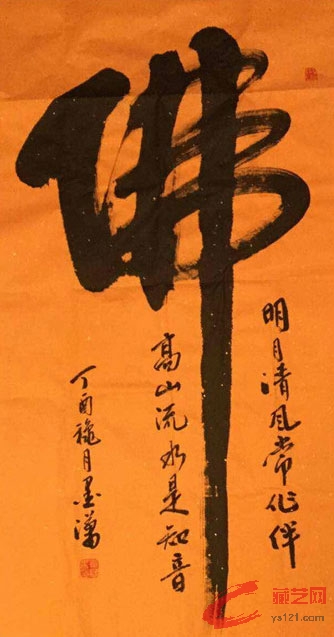 佛
明月清风常作伴
高山流水是知音
丁酉穐月墨潇
藏艺网
ys121.com